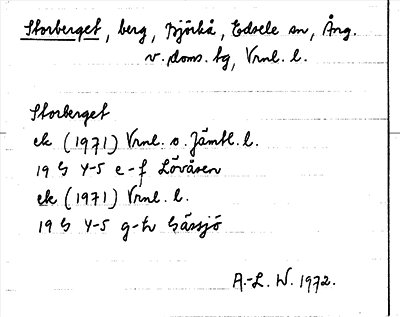 Storberget, berg, Björkå, Edsele sn, Ång.
v. doms. bg, Vrnl. l.
Storberget
ek (1971) Vrnl. o. Jämtl. l.
19 G 4-5 e-f Lövåsen
ek (1971) Vrnl. l.
19 G 4-5 g-h Gässjö
A.-L. W. 1972.